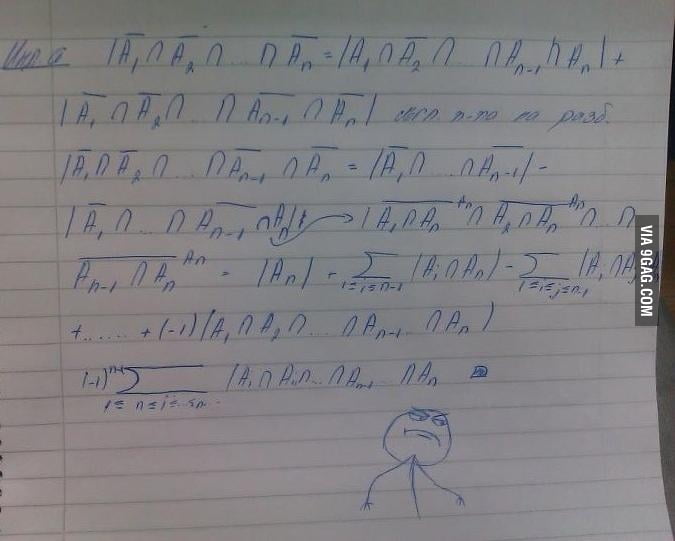 |A̅₁ ∩ A̅₂ ∩ ... ∩ A̅ₙ = |A₁ ∩ A̅₂ ∩ ... ∩ Aₙ₋₁ ∩ Aₙ| +
|A̅₁ ∩ A̅₂ ∩ ... ∩ A̅ₙ₋₁ ∩ A̅ₙ| п-па на разб.
|A̅₁ ∩ A̅₂ ∩ ... ∩ A̅ₙ₋₁ ∩ A̅ₙ = |A̅₁ ∩ ... ∩ A̅ₙ₋₁| -
|A̅₁ ∩ ... ∩ A̅ₙ₋₁ ∩ Aₙ| → |A̅₁̅ ̅∩̅ ̅A̅ₙ̅ ᴬⁿ ∩ A̅₂̅ ̅∩̅ ̅A̅ₙ̅ ᴬⁿ ∩ ... ∩
A̅ₙ̅₋̅₁̅ ̅∩̅ ̅A̅ₙ̅ ᴬⁿ = |Aₙ| - ∑ 1≤i≤n-1 |Aᵢ ∩ Aₙ| - ∑ 1≤i≤j≤n-1 |Aᵢ ∩ Aⱼ
+ ...... + (-1) |A₁ ∩ A₂ ∩ ... ∩ Aₙ₋₁ ∩ Aₙ|
(-1)ⁿ⁻¹ ∑ |Aᵢ ∩ Aᵢᵢ ∩ ... ∩ Aₙ₋₁ ∩ Aₙ
VIA 9GAG.COM